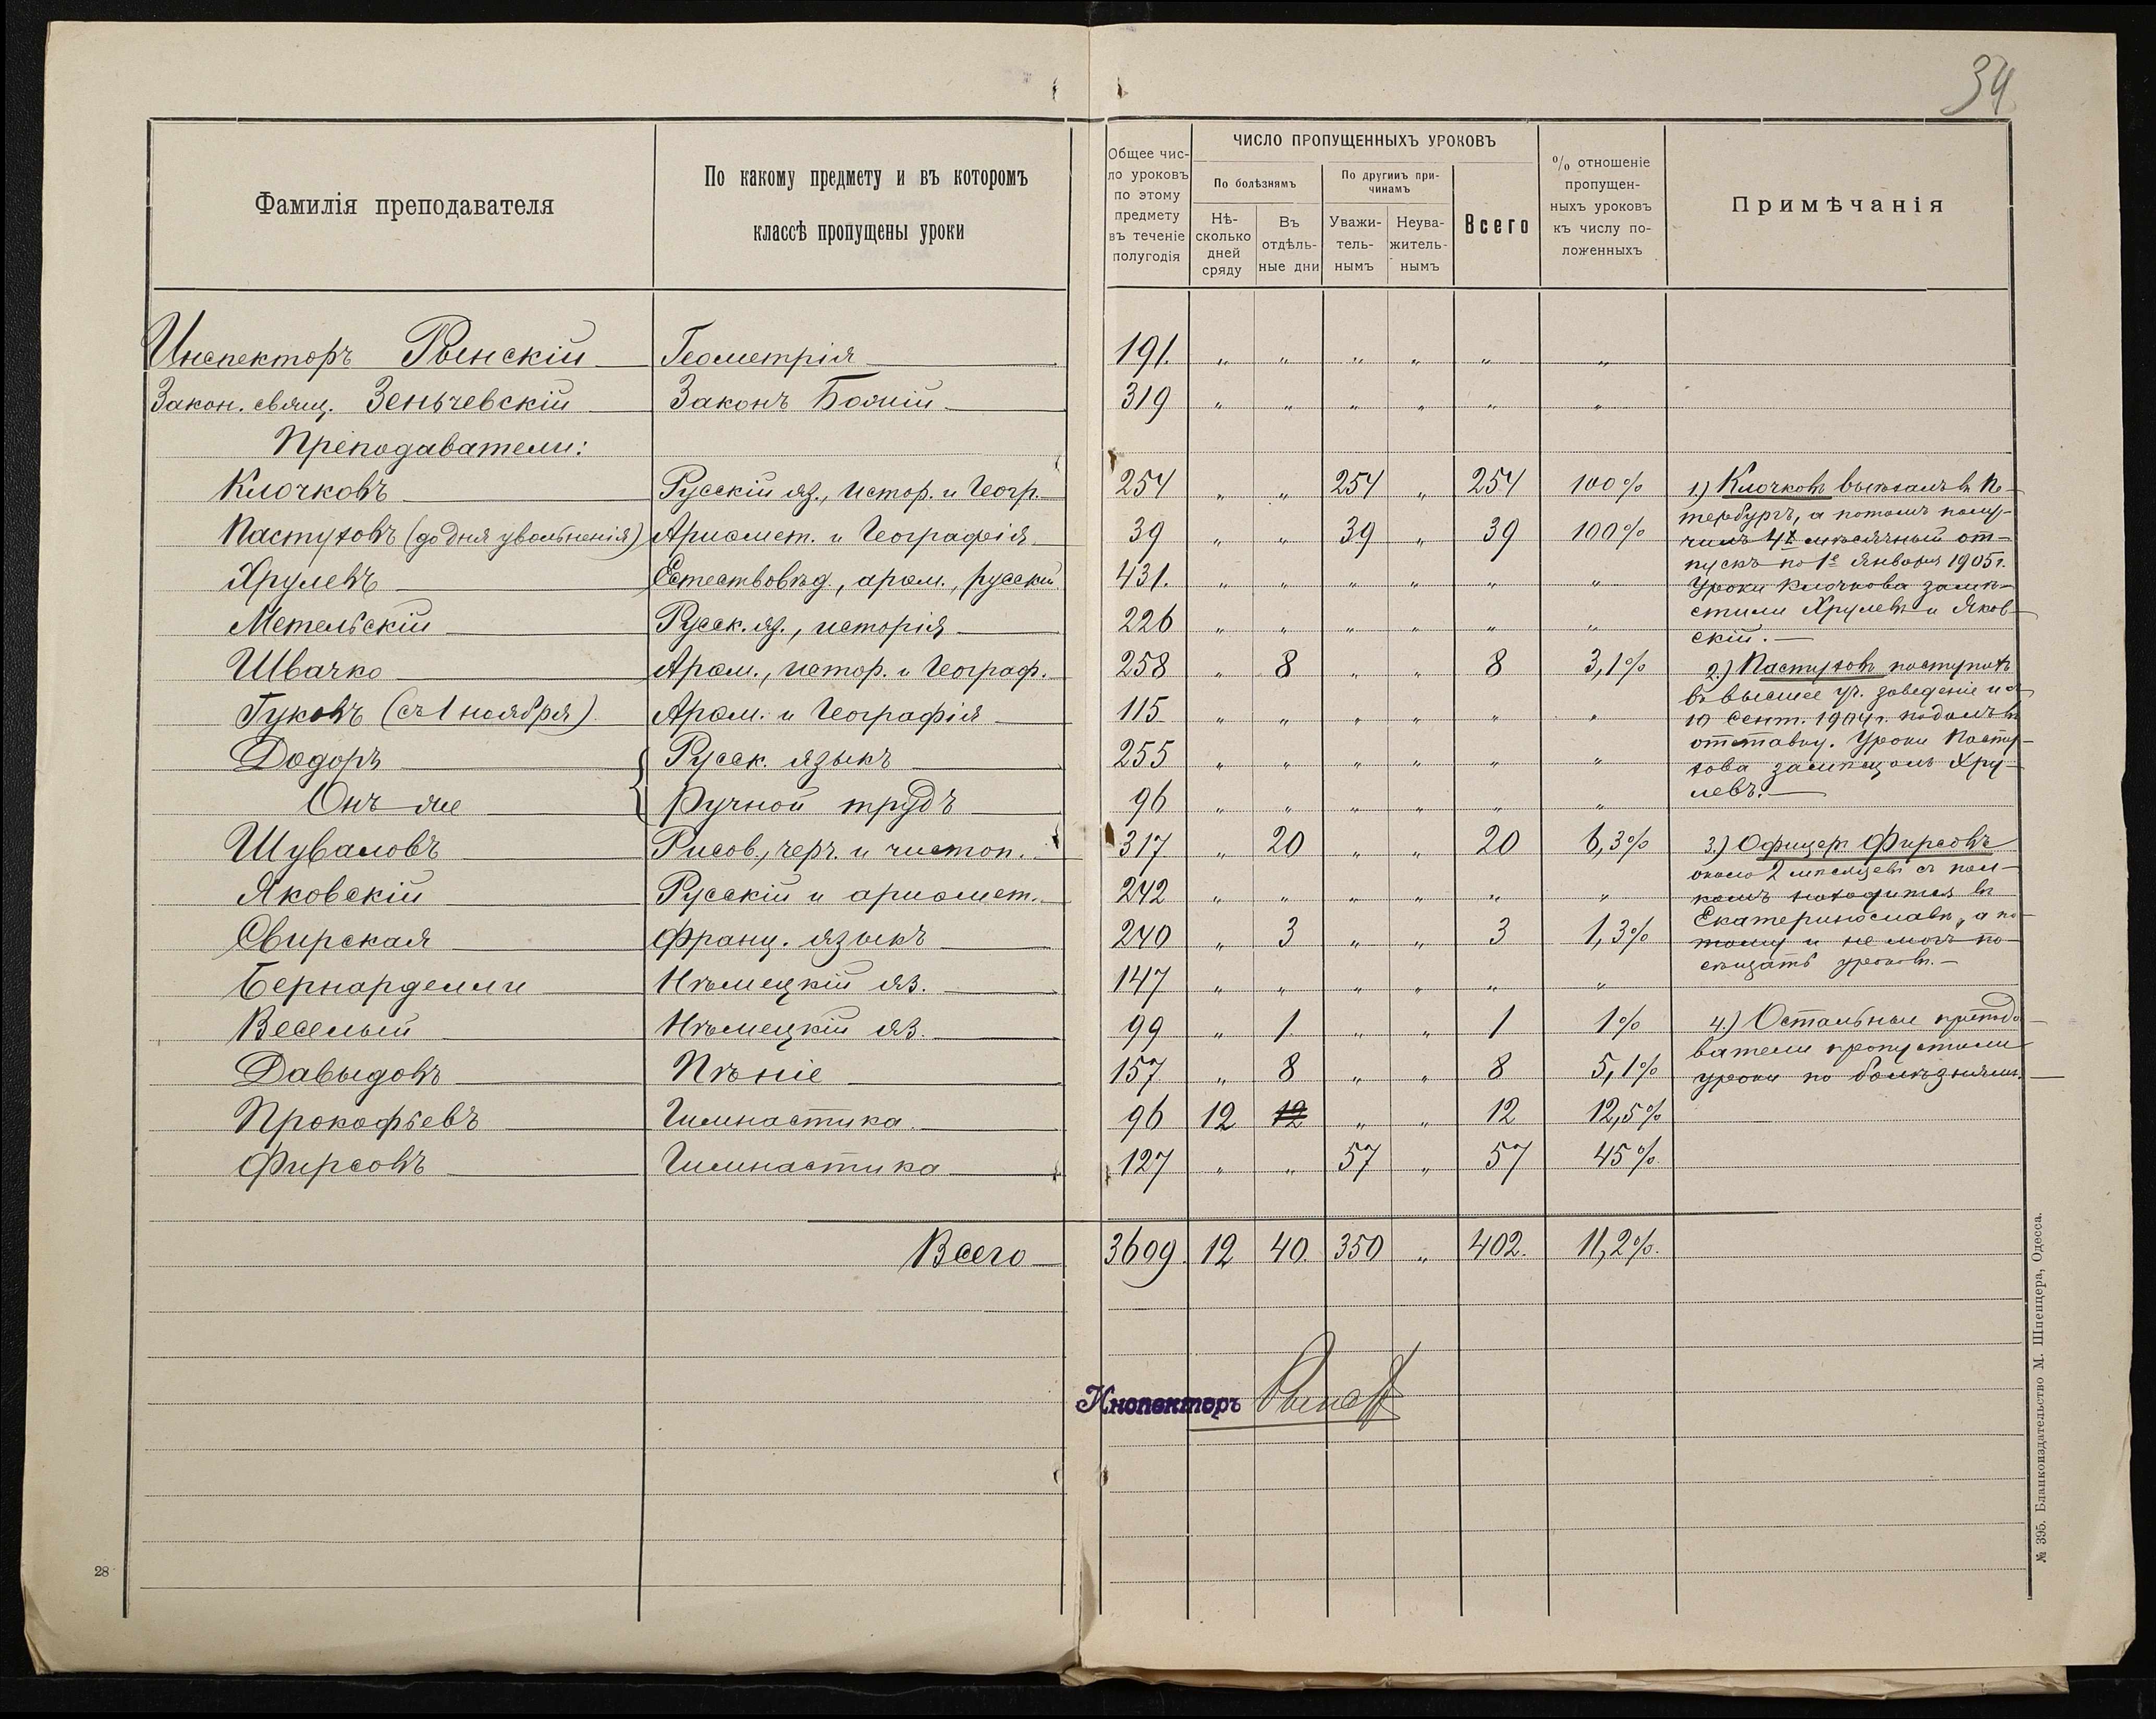 34
Фамилія преподавателя
По какому предмету и въ которомъ
классѣ пропущены уроки
Общее чис-
ло уроковъ
по этому
предмету
въ теченіе
полугодія
ЧИСЛО ПРОПУЩЕННЫХЪ УРОКОВЪ
По болѣзнямъ
По другимъ при-
чинамъ
Нѣ-
сколько
дней
сряду
Въ
отдѣль-
ные дни
Уважи-
тель-
нымъ
Неува-
житель-
нымъ
Всего
% отношеніе
пропущен-
ныхъ уроковъ
къ числу по-
ложенныхъ
Примѣчанія
Инспекторъ Рынскій Геометрія 191. " " " " " "
Закон. свящ. Зеньчевскій Законъ Божій 319 " " " " " "
Преподаватели:
Клочковъ Русскій яз., истор. и Геогр. 254 " " 254 " 254 100%
Пастуховъ (до дня увольненія) Ариѳмет. и Географія 39 " " 39 " 39 100%
Хрулевъ Естествовѣд., ариѳм., русскій 431. " " " " " "
Метельскій Русск. яз., исторія 226 " " " " " "
Швачко Ариѳм., истор. и Географ. 258 " 8 " " 8 3,1%
Гуковъ (съ 1 ноября) Ариѳм. и Географія 115 " " " " " "
Додоръ Русск. языкъ 255 " " " " " "
Онъ же Ручной трудъ 96 " " " " " "
Шуваловъ Рисов., черч. и чистоп. 317 " 20 " " 20 6,3%
Яковскій Русскій и ариѳмет. 242 " " " " " "
Свирская Франц. языкъ 240 " 3 " " 3 1,3%
Бернарделли Нѣмецкій яз. 147 " " " " " "
Веселый Нѣмецкій яз. 99 " 1 " " 1 1%
Давыдовъ Пѣніе 157 " 8 " " 8 5,1%
Прокофьевъ Гимнастика 96 12 12 " " 12 12,5%
Фирсовъ Гимнастика 127 " " 57 " 57 45%
Всего 3609. 12 40. 350 " 402. 11,2%.
1.) Клочковъ выѣхалъ въ Пе-
тербургъ, а потомъ полу-
чилъ 4х мѣсячный от-
пускъ по 1е Января 1905 г.
Уроки Клочкова замѣ-
стили Хрулевъ и Яков-
скій.—
2.) Пастуховъ поступилъ
въ высшее уч. заведеніе и
10 Сент. 1904 г. подалъ въ
отставку. Уроки Пасту-
хова замѣщалъ Хру-
левъ.—
3.) Офицеръ Фирсовъ
около 2 мѣсяцевъ съ пол-
комъ находится въ
Екатеринославѣ, а по-
тому и не могъ по-
сѣщать уроковъ.—
4.) Остальные препода-
ватели пропустили
уроки по болѣзнямъ.—
Инспекторъ
28
№ 395. Бланкоиздательство М. Шпенцера, Одесса.